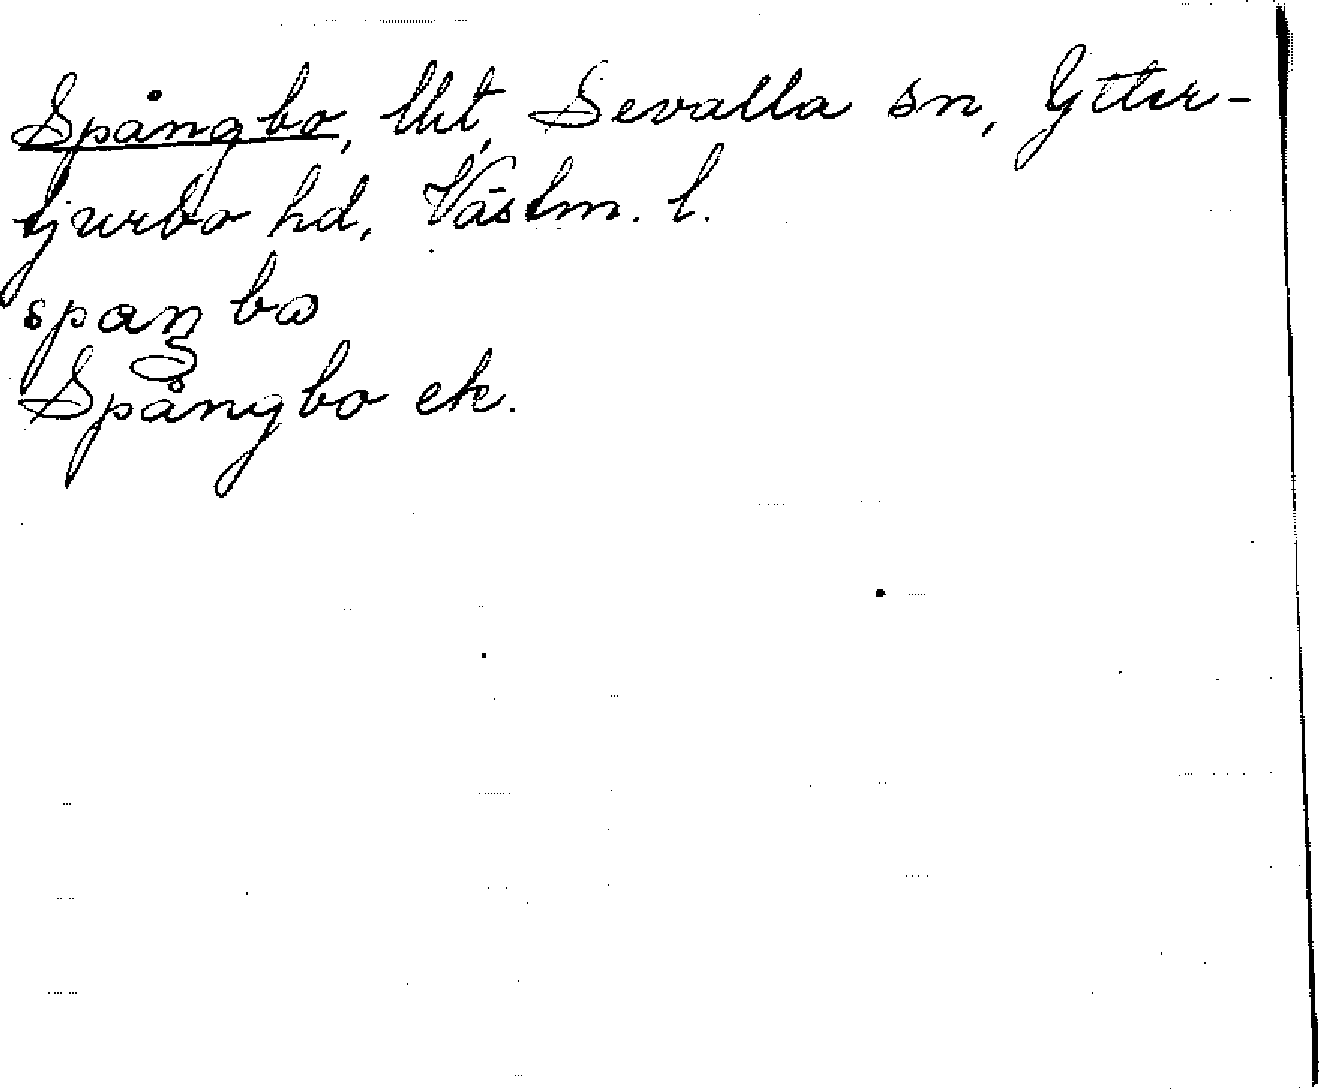 Spångbo, lht, Sevalla sn, Ytter-
tjurbo hd, Västm. l.
Spångbo ek.